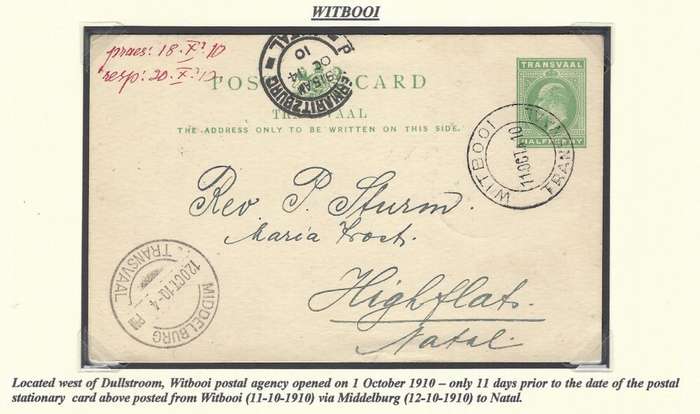 WITBOOI
praes: 18. X? 10
resp: 20. X? 10
PIETERMARITZBURG
NATAL
9 15 AM
OC 14
10
POST CARD
TRANSVAAL
THE ADDRESS ONLY TO BE WRITTEN ON THIS SIDE.
TRANSVAAL
HALFPENNY
WITBOOI
11 OCT 10
TRANSVAAL
Rev P. Sturm.
Maria Trost.
Highflats.
Natal.
MIDDELBURG
12 OCT 10 - 4 PM
TRANSVAAL
Located west of Dullstroom, Witbooi postal agency opened on 1 October 1910 – only 11 days prior to the date of the postal
stationary card above posted from Witbooi (11-10-1910) via Middelburg (12-10-1910) to Natal.